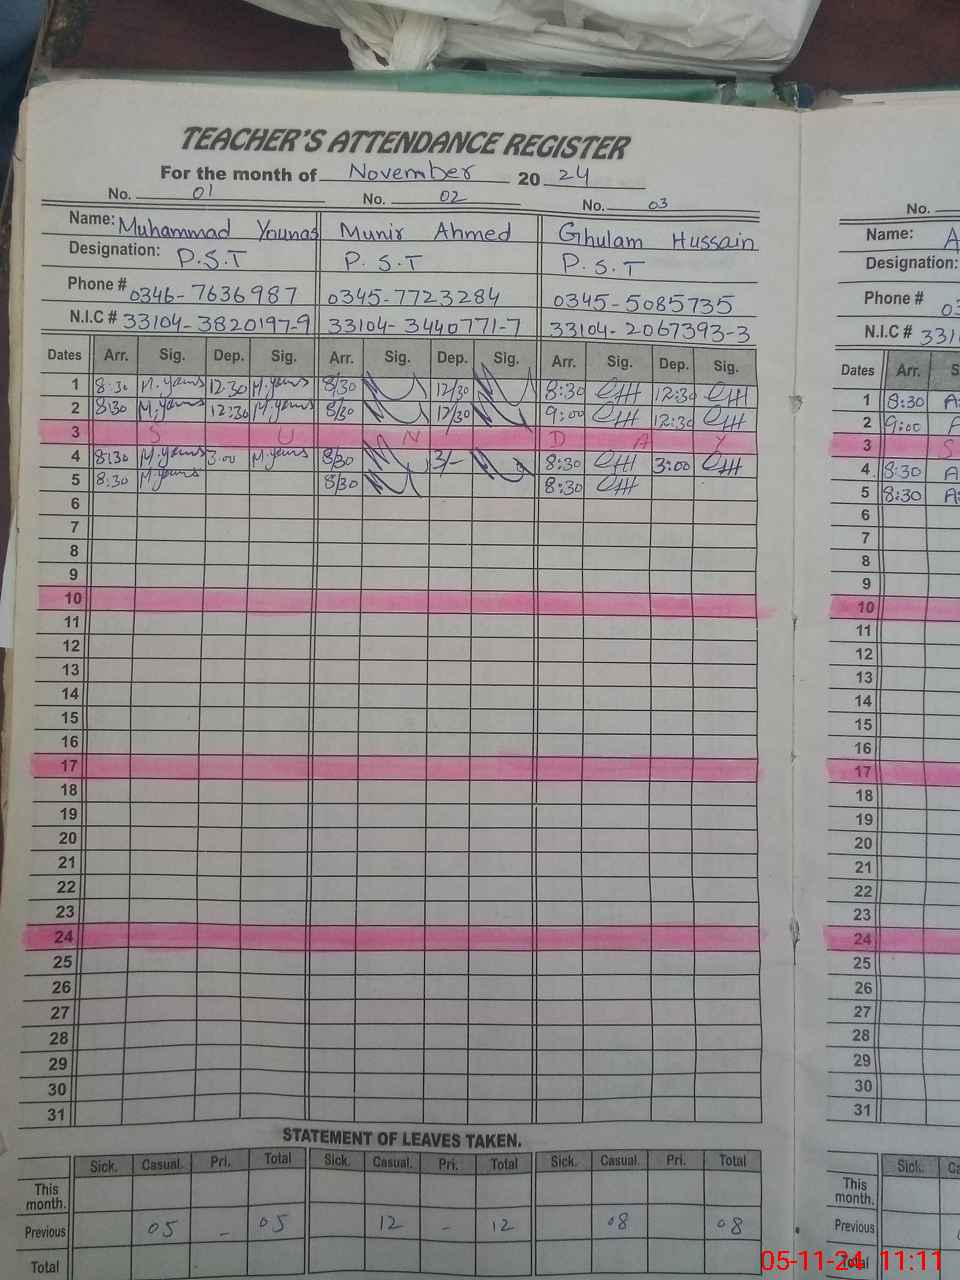 TEACHER'S ATTENDANCE REGISTER
For the month of November 2024
No. 01 No. 02 No. 03
Name: Muhammad Younas Munir Ahmed Ghulam Hussain
Designation: P.S.T P.S.T P.S.T
Phone # 0346-7636987 0345-7723284 0345-5085735
N.I.C # 33104-3820197-9 33104-3440771-7 33104-2067393-3
Dates Arr. Sig. Dep. Sig. Arr. Sig. Dep. Sig. Arr. Sig. Dep. Sig.
1 8:30 M.youns 12:30 M.youns 8/30 12/30 8:30 12:30
2 8:30 M.youns 12:30 M.youns 8/30 12/30 9:00 12:30
3 S U N D A Y
4 8:30 M.youns 3:00 M.youns 8/30 3/- 8:30 3:00
5 8:30 M.youns 8/30 8:30
6
7
8
9
10
11
12
13
14
15
16
17
18
19
20
21
22
23
24
25
26
27
28
29
30
31
STATEMENT OF LEAVES TAKEN.
Sick. Casual. Pri. Total Sick. Casual. Pri. Total Sick. Casual. Pri. Total
This month.
Previous 05 - 05 12 - 12 08 08
Total
No.
Name: A
Designation:
Phone # 03
N.I.C # 331
Dates Arr. S
1 8:30 A
2 9:00
3 S
4 8:30 A
5 8:30 A
6
7
8
9
10
11
12
13
14
15
16
17
18
19
20
21
22
23
24
25
26
27
28
29
30
31
Sick. Ca
This month.
Previous
Total
05-11-24 11:11